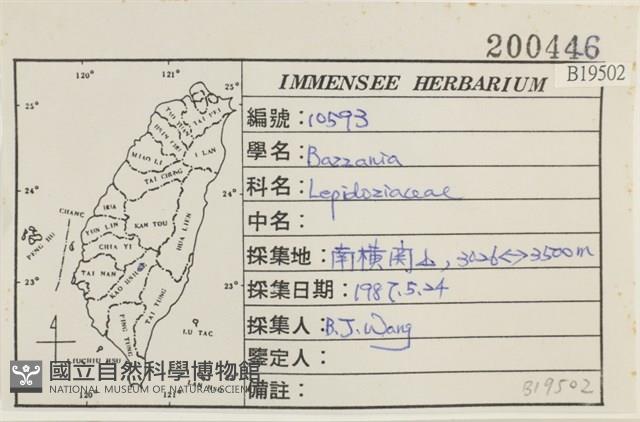 200446
B19502
IMMENSEE HERBARIUM
編號：10593
學名：Bazzania
科名：Lepidoziaceae
中名：
採集地：南橫関山, 3026↔3500m
採集日期：1987.5.24
採集人：B.J.Wang
鑒定人：
備註：
B19502
120°
121°
25°
25°
TAI PEI
I LAN
MIAO LI
TAI CHUNG
24°
24°
CHANG
HUA
YUN LIN
NAN TOU
HUA LIEN
PENG HU
CHIA YI
TAI NAN
KAO HSIUNG
23°
23°
TAI TUNG
PING TUNG
LU TAO
LIUCHIU HSU
120°
121°
國立自然科學博物館
NATIONAL MUSEUM OF NATURAL SCIENCE